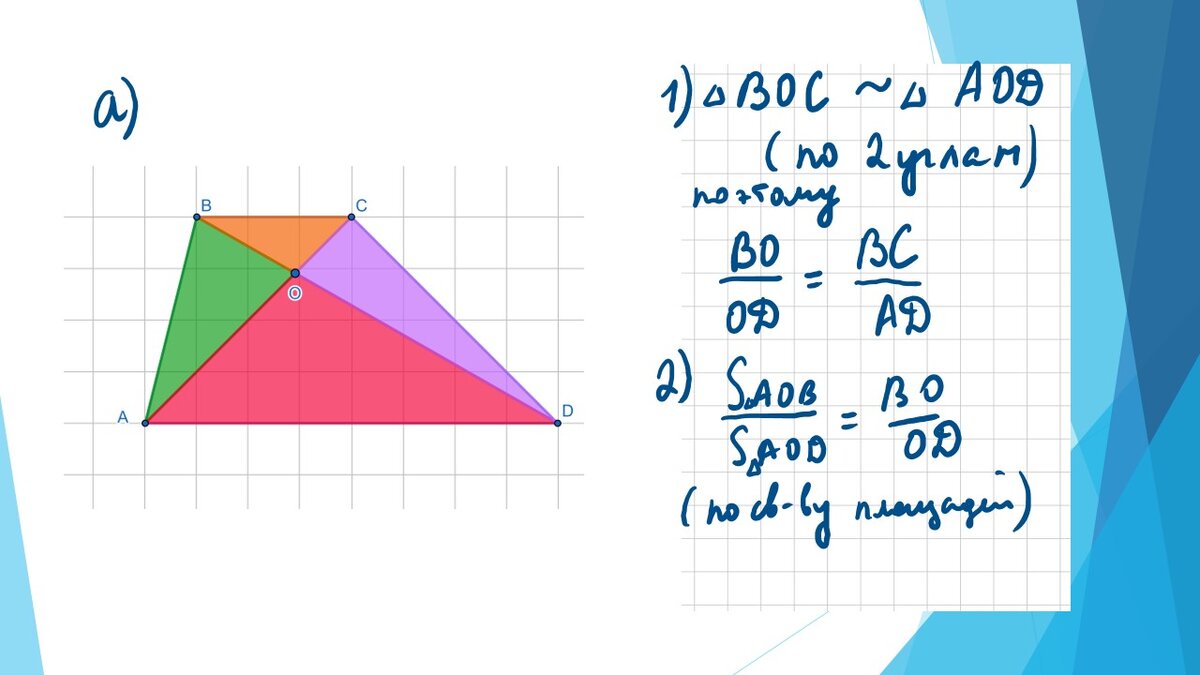 а)
B C
O
A D
1) △ BOC ~ △ AOD
(по 2 углам)
поэтому
BO/OD = BC/AD
2) S△AOB/S△AOD = BO/OD
(по св-ву площадей)